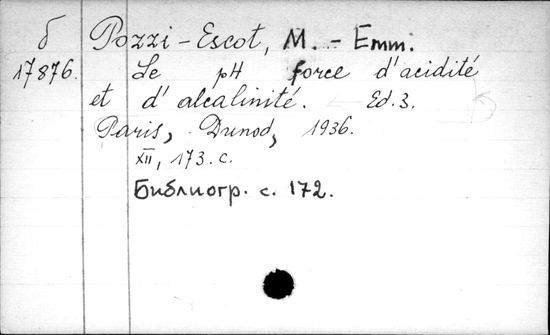 б Pozzi-Escot, M.-Emm.
17876. Le pH force d'acidité
et d'alcalinité. Ed. 3.
Paris, Dunod, 1936.
XII, 173. с.
Библиогр. с. 172.